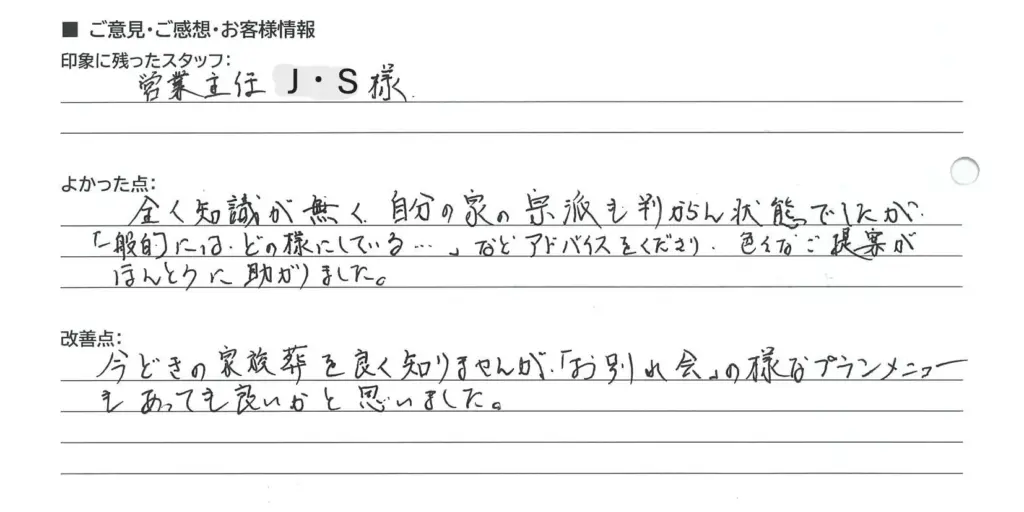 ■ ご意見・ご感想・お客様情報
印象に残ったスタッフ:
営業主任 J・S 様
よかった点:
全く知識が無く、自分の家の宗派も判からん状態でしたが、
「一般的には、どの様にしている…」などアドバイスをくださり、色々なご提案が
ほんとうに助かりました。
改善点:
今どきの家族葬を良く知りませんが、「お別れ会」の様なプランメニュー
もあっても良いかと思いました。